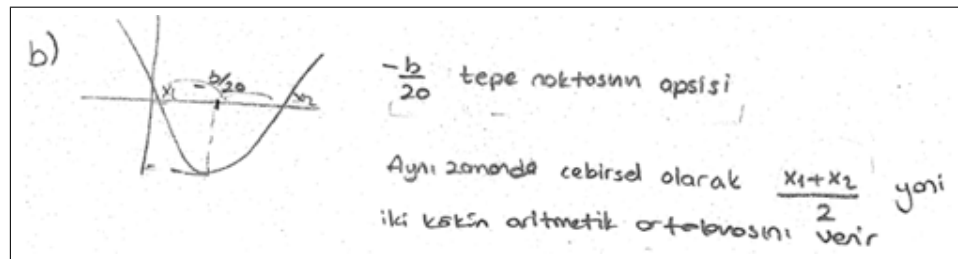 b)
x₁ -b/20 x₂
-b/20 tepe noktasının apsisi
Aynı zamanda cebirsel olarak x₁+x₂/2 yani
iki kökün aritmetik ortalamasını verir